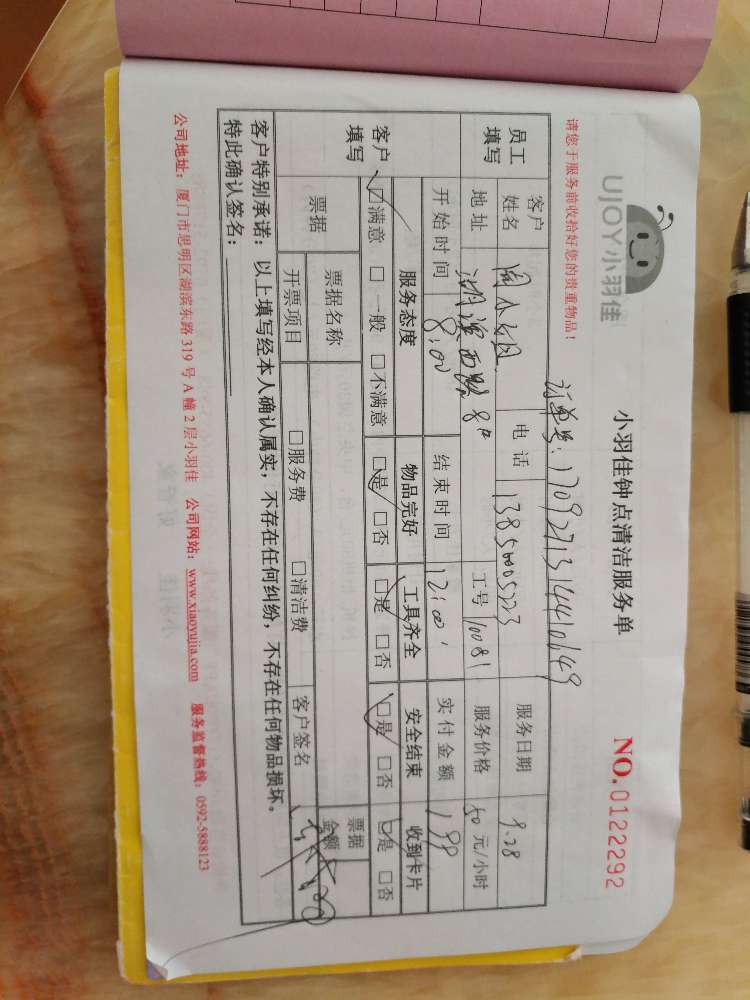 UJOY小羽佳
小羽佳钟点清洁服务单
NO.0122292
请您于服务前收拾好您的贵重物品！
订单号：
员工填写
客户姓名 周小姐 电话 服务日期 9.28
地址 湖滨西路 工号 10081 服务价格 50元/小时
开始时间 8:00 结束时间 12:00 实付金额 199
客户填写
服务态度 物品完好 工具齐全 安全结束 收到卡片
☑满意 □一般 □不满意 ☑是 □否 ☑是 □否 ☑是 □否 ☑是 □否
票据
票据名称 票据金额
开票项目 □服务费 □清洁费 客户签名
客户特别承诺：以上填写经本人确认属实，不存在任何纠纷，不存在任何物品损坏。
特此确认签名：
公司地址：厦门市思明区湖滨东路 319 号 A 幢 2 层小羽佳 公司网站：www.xiaoyujia.com 服务监督热线：0592-5888123